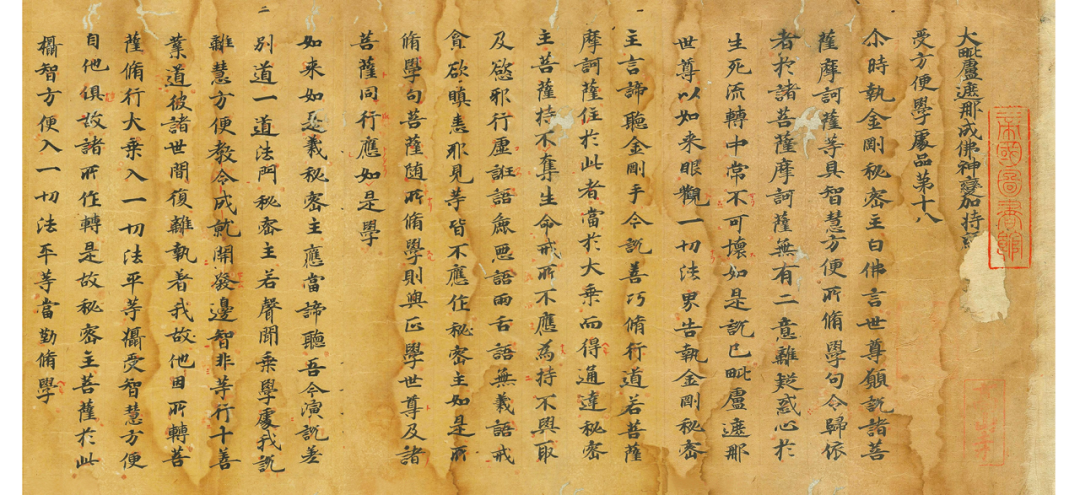 大毗盧遮那成佛神變加持
受方便學處品第十八
尒時執金剛秘密主白佛言世尊願說諸菩
薩摩訶薩等具智慧方便所脩學句令歸依
者於諸菩薩摩訶薩無有二意離疑惑心於
生死流轉中常不可壞如是說已毗盧遮那
世尊以如来眼觀一切法界告執金剛秘密
主言諦聽金剛手今說善巧脩行道若菩薩
摩訶薩住於此者當於大乗而得通達秘密
主菩薩持不奪生命戒所不應為持不與取
及慾邪行虛誑語麁惡語兩舌語無義語戒
貪欲瞋恚邪見等皆不應住秘密主如是所
脩學句菩薩随所脩學則與正學世尊及諸
菩薩同行應如是學
如来如是義秘密主應當諦聽吾今演說差
別道一道法門秘密主若聲聞乗學處我說
離慧方便教令成就開發邊智非等行十善
業道彼諸世間復離執著我故他因所轉菩
薩脩行大乗入一切法平等攝受智慧方便
自他俱故諸所作轉是故秘密主菩薩於此
攝智方便入一切法平等當勤脩學
一
二
帝國圖書館